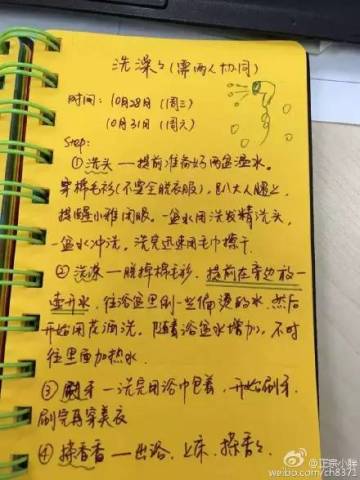 洗澡々(需两人协同)
时间: 10月28日(周三)
10月31日(周六)
Step:
①洗头—提前准备好两盆温水。
穿棉毛衫(不要全脱衣服),趴大人腿上
提醒小雅闭眼。一盆水用洗发精洗头,
一盆水冲洗,洗完迅速用毛巾擦干.
②洗澡—脱掉棉毛衫,提前在旁边放一
壶开水,往浴盆里倒一些偏烫的水,然后
开始用花洒洗,随着浴盆水增加,不时
往里面加热水.
③刷牙—洗完用浴巾包着,开始刷牙.
刷完再穿美衣
④擦香香—出浴、上床、擦香々
@正宗小胖
weibo.com/ch8371